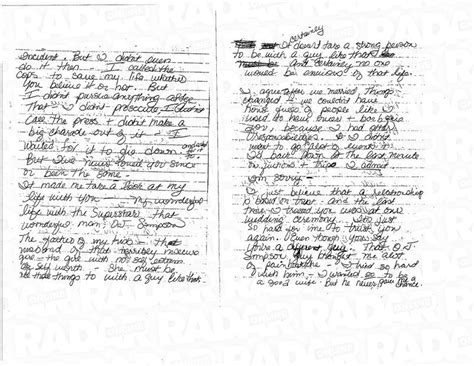 incident. But I didn't even
do it then. I called the
cops to save my life whether
you believe it or not. But
I didn't pursue anything after
that - I didn't prosecute, I didn't
call the press & didn't make a
big charade out of it & I
waited for it to die down and
But I've never loved you since
or been the same.
It made me take a look at my
life with you - My wonderful
life with the Superstar that
wonderful man, O.J. Simpson
The father of my kids - that
husband of that
- the girl with no self esteem
or self worth - She must be
things to with a guy like that.
certainly
It doesn't take a strong person
to be with a guy like that
and certainly no one
would be envious of that life.
I agree after we married things
changed - we couldn't have
house of people like I
used to have over & barbque
for, because I had other
responsibilities. I didn't
want to go to events &
I'd back down at the last minute
I admit
I'm sorry -
I just believe that a relationship
is based on trust - and the last
time I trusted you was at our
wedding ceremony. It's just
so hard for me to trust you
again. Even tho you say
you're a different guy. That O.J.
Simpson guy brought me alot
of pain - I tried so hard
with him - I wanted so to be
a good wife. But he never gave me a
chance.
RAD